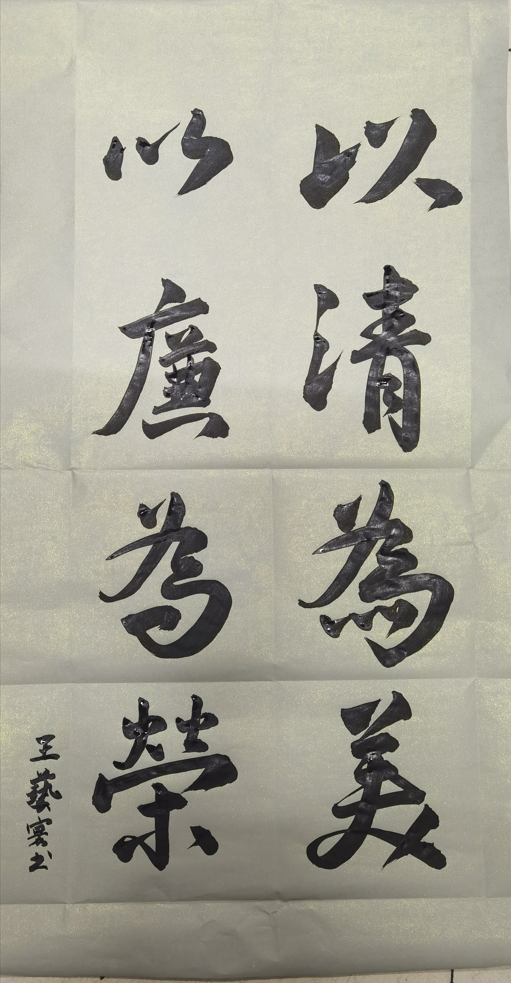 以清為美
以廉為榮
王藝霖书